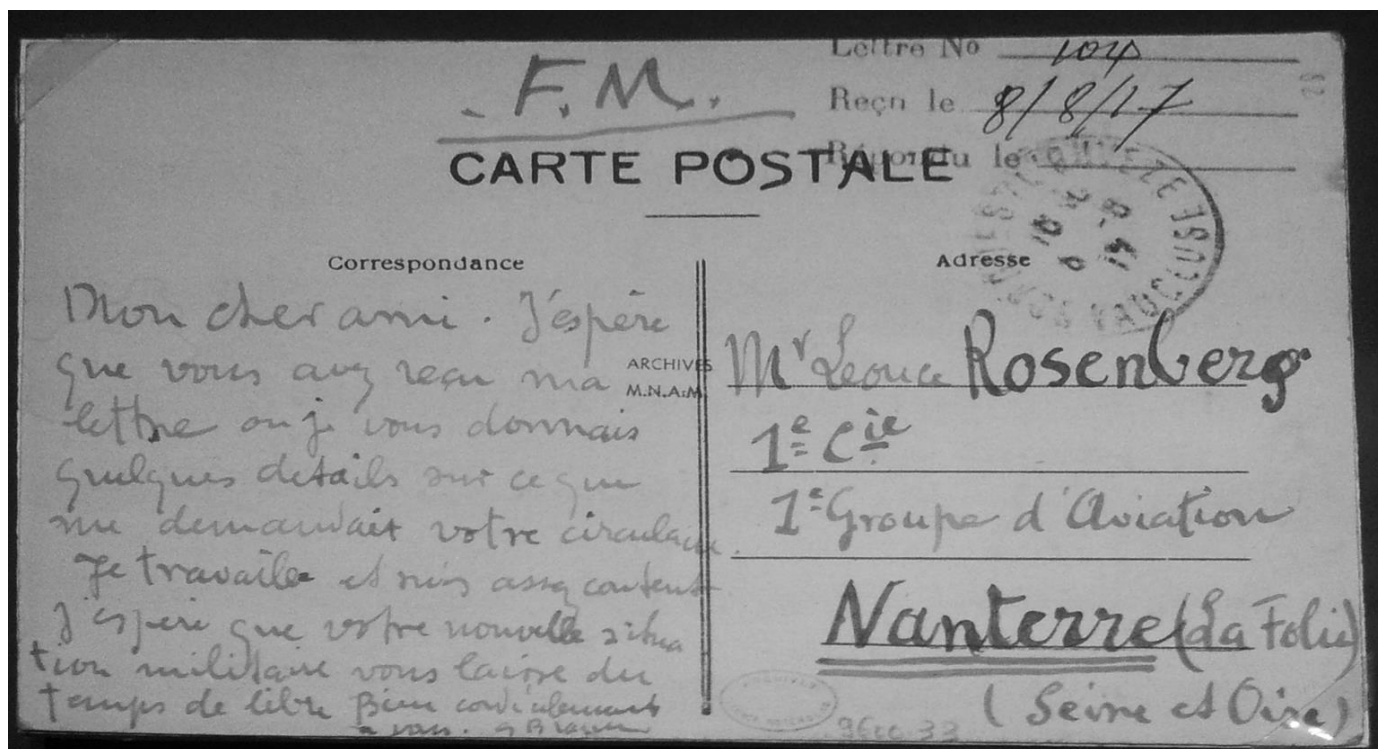 F.M.
Lettre No 104
Reçu le 8/8/17
Répondu le
CARTE POSTALE
Correspondance
Mon cher ami. J'espère
que vous avez reçu ma
lettre ou je vous donnais
quelques details sur ce que
me demandait votre circulaire.
Je travaille et suis assez content
J'espère que votre nouvelle situa
tion militaire vous laisse du
temps de libre Bien cordialement
a vous. G Braque
ARCHIVES
M.N.A.M.
Adresse
VAUCLUSE
Mr Léonce Rosenberg
1e Cie
1e Groupe d'Aviation
Nanterre (La Folie)
(Seine et Oise)